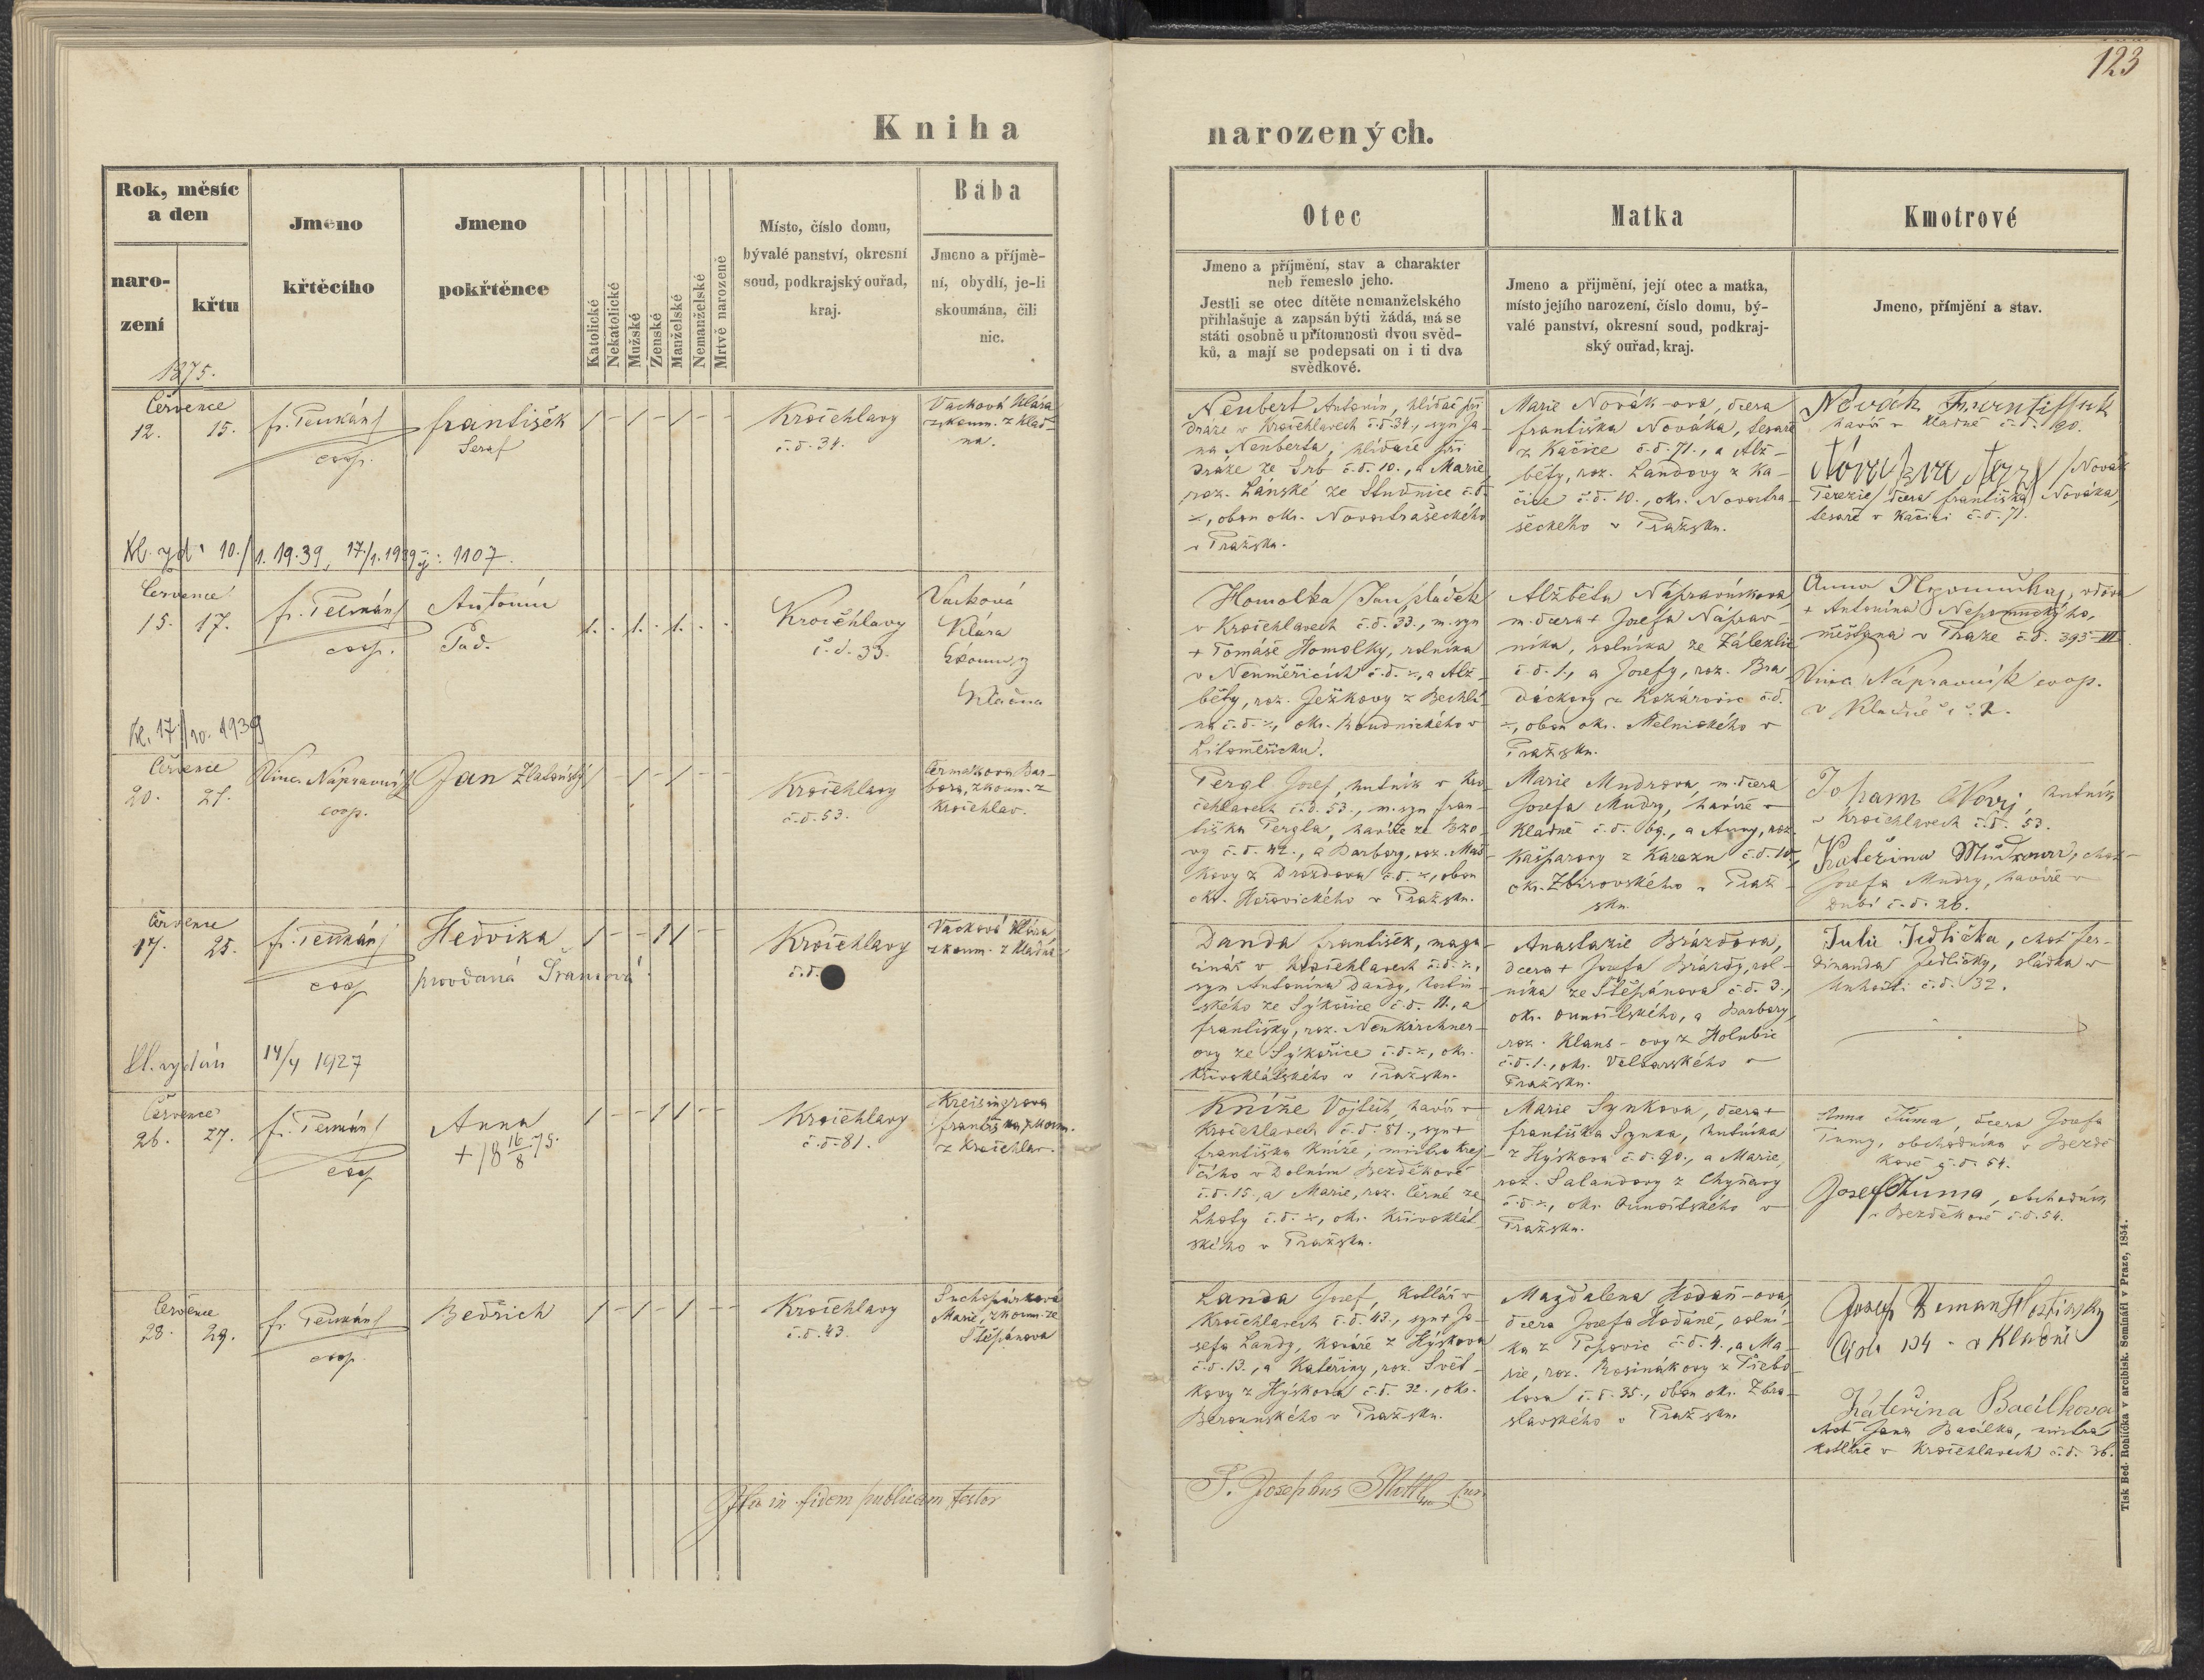 123
Kniha
narozených.
Rok, měsíc
a den
naro-
zení
křtu
1875.
Jmeno
křtěcího
Jmeno
pokřtěnce
Katolické
Nekatolické
Mužské
Zenské
Manželské
Nemanželské
Mrtvě narozené
Místo, číslo domu,
bývalé panství, okresní
soud, podkrajský ouřad,
kraj.
Bába
Jmeno a příjmě-
ní, obydlí, je-li
skoumána, čili
nic.
Otec
Jmeno a příjmění, stav a charakter
neb řemeslo jeho.
Jestli se otec dítěte nemanželského
přihlašuje a zapsán býti žádá, má se
státi osobně u přítomnosti dvou svěd-
ků, a mají se podepsati on i ti dva
svědkové.
Matka
Jmeno a přijmění, její otec a matka,
místo jejího narození, číslo domu, bý-
valé panství, okresní soud, podkraj-
ský ouřad, kraj.
Kmotrové
Jmeno, přímjění a stav.
Července
12. 15.
coop.
František
Seraf
Kročehlavy
č.d. 34.
Vacková Klára
zkoum. z Klad-
na.
Neubert Antonín, hlídač při
dráze v Kročehlavech č.d. 34., syn Ja-
na Neuberta, hlídače při
dráze ze Srb č.d. 10., a Marie,
roz. Lánské ze Studnice č.d.
, obou okr. Novostrašeckého
v Pražsku.
Marie Novák-ova, dcera
Františka Nováka, tesaře
z Kačice č.d. 71., a Alž-
běty, roz. Landovy z Ka-
čice č.d. 10., okr. Novostra-
šeckého v Pražsku.
Novák
havíř v Kladně č.d. 90.
Novák
Terezie, dcera Františka Nováka,
tesaře v Kačici č.d. 71.
Kl. vyd. 10./1. 1939, 17./1. 1939 j: 1107.
Července
15. 17.
coop.
Antonín
Pad.
1. 1. 1.
Kročehlavy
č.d. 33.
Vacková
Klára
zkoum. z
Kladna
Homolka Jan, sládek
v Kročehlavech č.d. 33., m. syn
+ Tomáše Homolky, rolníka
v Neuměřicích č.d. , a Alž-
běty, roz. Ježkovy z Bechlí-
na č.d. , okr. Roudnického v
Litoměřicku.
Alžběta Nápravníkova,
m. dcera + Josefa Náprav-
níka, rolníka ze Zálezlic
č.d. 1., a Josefy, roz. Bra-
dáčkovy z Kozárovic č.d.
, obou okr. Mělnického v
Pražsku.
Anna vdova
+ Antonína Nepomuckýho,
měšťana v Praze č.d. 395-II.
Vinc. Nápravník coop.
v Kladně č.
Kl. 17/10. 1939
Července
20. 21.
Vinc. Nápravník
coop.
Jan Zlatoústý
Kročehlavy
č.d. 53.
Čermákova Bar-
bora, zkoum. z
Kročehlav.
Pergl Josef, hutník v Kro-
čehlavech č.d. 53., m. syn Fran-
tiška Pergla, havíře ze Bzo-
vy č.d. 42., a Barbory, roz. Maš-
kovy z Drozdova č.d. , obou
okr. Hořovického v Pražsku.
Marie Mudrova, m. dcera
Josefa Mudry, havíře v
Kladně č.d. 69., a Anny, roz.
Kašparovy z Karezu č.d. 10,
okr. Zbirovského v Praž-
sku.
Johann hutník
v Kročehlavech č.d. 53.
Kateřina choť
Josefa Mudry, havíře v
Dubí č.d. 26.
Července
17. 25.
coop
Hedvika
provdaná Šramová
Kročehlavy
č.d.
Vacková Klára
zkoum. z Kladna
Danda František, maga-
cinář v Kročehlavech č.d. ,
syn Antonína Dandy, hostin-
ského ze Sýkořice č.d. 11., a
Františky, roz. Neukirchner-
ovy ze Sýkořice č.d. , okr.
Křivoklátského v Pražsku.
Anastazie Brázdova,
dcera + Josefa Brázdy, rol-
níka ze Štěpánova č.d. 3.,
okr. Ounošťského, a Barbory,
roz. Klaus-ovy z Holubic
č.d. 1., okr. Velvarského v
Pražsku.
Julie Jedlička, choť Fer-
dinanda Jedličky, sládka v
Unhošti č.d. 32.
Kl. vydán 14/4 1927
Července
26. 27.
coop
Anna
+ 18 16/8 75.
Kročehlavy
č.d. 81.
Kreisingrova
Františka, zkoum.
z Kročehlav.
Kníže Vojtěch, havíř v
Kročehlavech č.d. 81., syn +
Františka Kníže, mistra krej-
čího v Dolním Bezděkově
č.d. 15., a Marie, roz. Černé ze
Lhoty č.d. , okr. Křivoklát-
ského v Pražsku.
Marie Synkova, dcera +
Františka Synka, hutníka
z Hýskova č.d. 90., a Marie,
roz. Salandovy z Chyňavy
č.d. , okr. Ounošťského v
Pražsku.
Anna Tůma, dcera Josefa
Tumy, obchodníka v Bezdě-
kově č.d. 54.
Josef Tůma, obchodník
v Bezděkově č.d. 54.
Července
28. 29.
coop.
Bedřich
Kročehlavy
č.d. 43.
Suchopárkova
Marie, zkoum. ze
Štěpánova
Landa Josef, kotlář v
Kročehlavech č.d. 43., syn + Jo-
sefa Landy, kováře z Hýskova
č.d. 13., a Kateřiny, roz. Svět-
kovy z Hýskova č.d. 32., okr.
Berounského v Pražsku.
Magdalena Hodáň-ova,
dcera Josefa Hodáně, rolní-
ka z Popovic č.d. 4., a Ma-
rie, roz. Rosinákovy z Třebo-
tova č.d. 35., obou okr. Zbra-
slavského v Pražsku.
Josef
Číslo 134 - v Kladně
Kateřina Bacílkova
choť Jana Bacílka, mistra
kotláře v Kročehlavech č.d. 36.
Ita in fidem publicam testor
P. Josephus
Tisk Bed. Rohlíčka v arcibisk. Semináři v Praze, 1854.